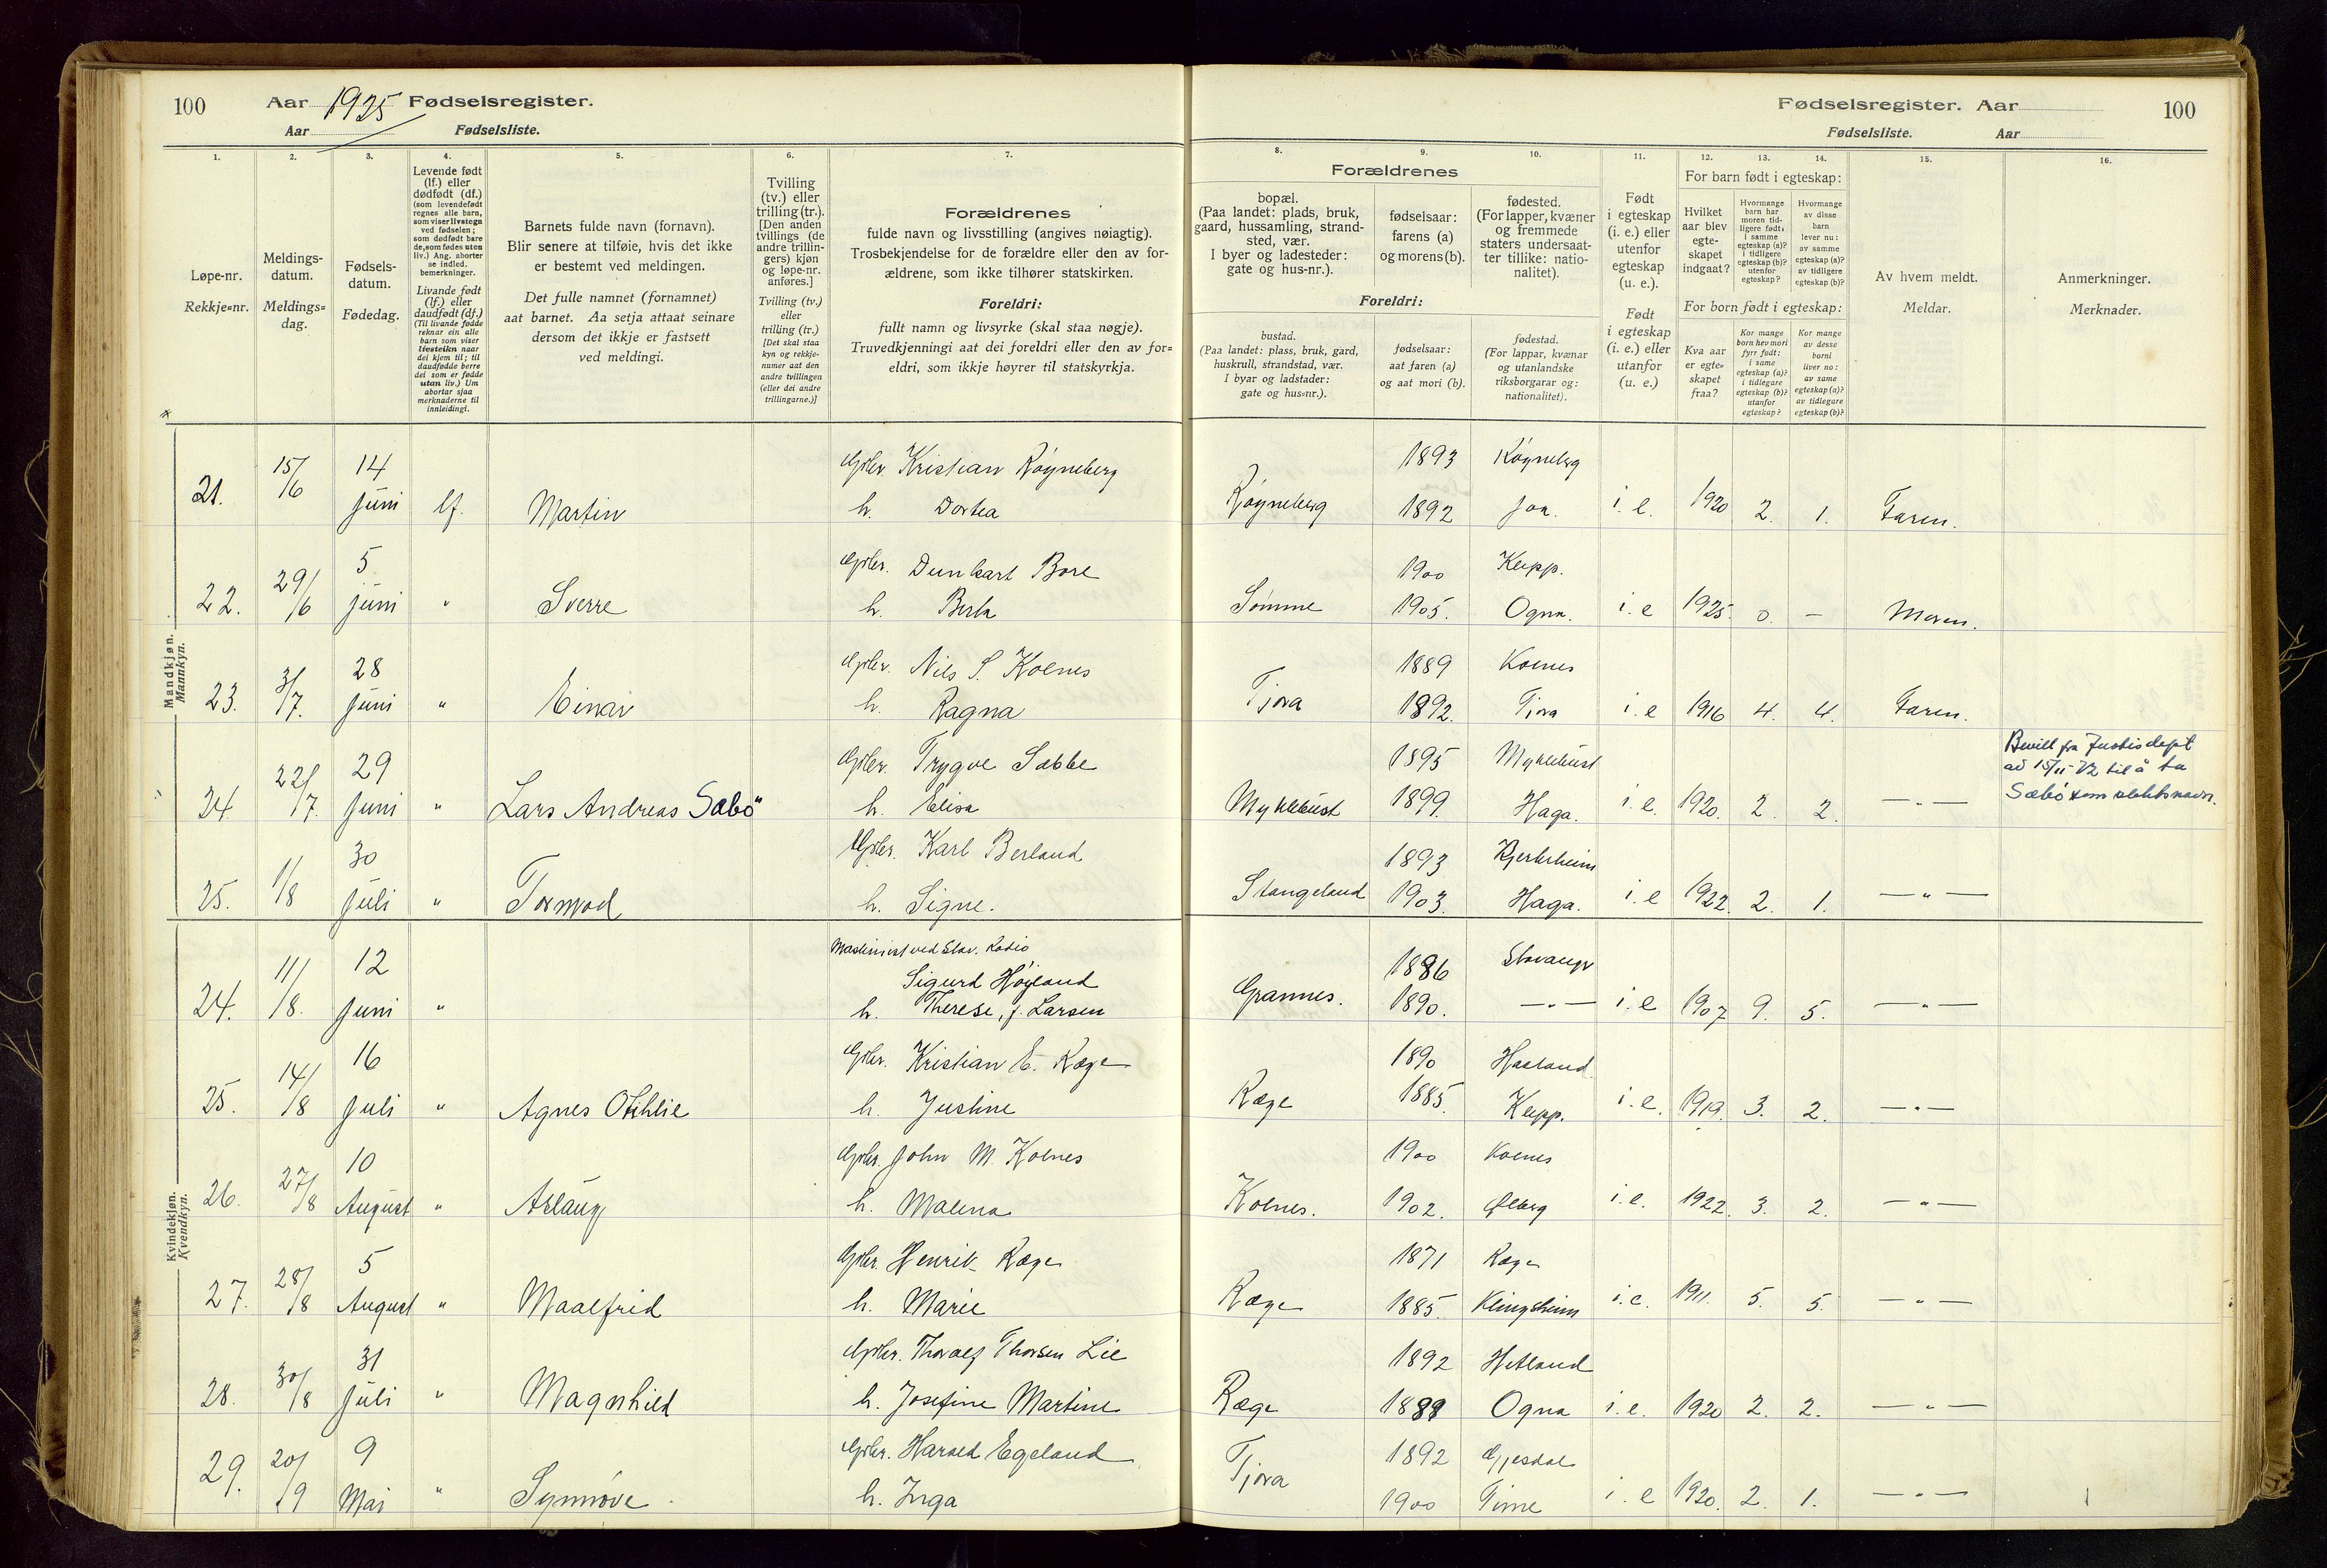 100 Aar 1925 Fødselsregister.
Aar Fødselsliste.
Fødselsregister. Aar 100
Fødselsliste. Aar
1. 2. 3. 4. 5. 6. 7. 8. 9. 10. 11. 12. 13. 14. 15. 16.
Løpe-nr.
Rekkje=nr.
Meldings-
datum.
Meldings=
dag.
Fødsels-
datum.
Fødedag.
Levende født
(lf.) eller
dødfødt (df.)
(som levendefødt
regnes alle barn,
som viser livstegn
ved fødselen;
som dødfødt bare
de, som fødes uten
liv.) Ang. aborter
se indled.
bemerkninger.
Livande født
(lf.) eller
daudfødt (df.)
(Til livande fødde
reknar ein alle
barn som viser
livsteikn naar
dei kjem til; til
daudfødde berre
dei som er fødde
utan liv.) Um
abortar sjaa
merknaderne til
innleidingi.
Barnets fulde navn (fornavn).
Blir senere at tilføie, hvis det ikke
er bestemt ved meldingen.
Det fulle namnet (fornamnet)
aat barnet. Aa setja attaat seinare
dersom det ikkje er fastsett
ved meldingi.
Tvilling
(tv.) eller
trilling (tr.).
[Den anden
tvillings (de
andre trillin-
gers) kjøn
og løpe-nr.
anføres.]
Tvilling (tv.)
eller
trilling (tr.)
[Det skal staa
kyn og rekkje-
numer aat den
andre tvillingen
(eller dei andre
trillingarne.)]
Forældrenes
fulde navn og livsstilling (angives nøiagtig).
Trosbekjendelse for de forældre eller den av for-
ældrene, som ikke tilhører statskirken.
Foreldri:
fullt namn og livsyrke (skal staa nøgje).
Truvedkjenningi aat dei foreldri eller den av for=
eldri, som ikkje høyrer til statskyrkja.
Forældrenes
bopæl.
(Paa landet: plads, bruk,
gaard, hussamling, strand-
sted, vær.
I byer og ladesteder:
gate og hus-nr.).
fødselsaar:
farens (a)
og morens (b).
fødested.
(For lapper, kvæner
og fremmede
staters undersaat-
ter tillike: natio-
nalitet).
Foreldri:
bustad.
(Paa landet: plass, bruk, gard,
huskrull, strandstad, vær.
I byar og ladstader:
gate og hus=nr.).
fødselsaar:
aat faren (a)
og aat mori (b).
fødestad.
(For lappar, kvænar
og utanlandske
riksborgarar og:
nationalitet).
Født
i egteskap
(i. e.) eller
utenfor
egteskap
(u. e.).
Født
i egteskap
(i. e.) eller
utanfor
(u. e.)
For barn født i egteskap:
Hvilket
aar blev
egte-
skapet
indgaat?
Hvormange
barn har
moren tid-
ligere født:
i samme
egteskap (a)?
i tidligere
egteskap (b)?
utenfor
egteskap?
Hvormange
av disse
barn
lever nu:
av samme
egteskap (a)?
av tidligere
egteskap (b)?
For born født i egteskap:
Kva aar
er egte=
skapet
fraa?
Kor mange
born hev mori
fyrr født:
i same
egteskap (a)?
i tidlegare
egteskap (b)?
utanfor
egteskap?
Kor mange
av desse
borni
liver no:
av same
egteskap (a)?
av tidlegare
egteskap (b)?
Av hvem meldt.
Meldar.
Anmerkninger.
Merknader.
Mandkjøn.
Mannkyn.
21. 15/6 14 Juni lf. Martin Gbr. Kristian Røyneberg Røyneberg 1893 Røyneberg
h. Dortea 1892 Joa. i. e. 1920 2. 1. Faren.
22. 29/6 5 Juni " Sverre Gbr. Dunkart Bore Sømme 1900 Klepp.
h. Berta 1905. Ogna. i. e 1925. 0. – Moren.
23. 3/7. 28 Juni " Einar Gbr. Nils S. Kolnes Tjora 1889 Kolnes
h. Ragna 1892. Tjora i. e 1916 4. 4. Faren.
24 22/7. 29 Juni " Lars Andreas Sæbø Gbr. Trygve Sæbbe Myklebust 1895 Myklebust
h. Elisa 1899. Haga. i. e. 1920. 2. 2. — " —
Bevill fra Justisdept
av 15/11-72 til å ta
Sæbø som slektsnavn.
25. 1/8 30 Juli " Tormod Gbr. Karl Berland Stangeland 1893 Bjerkreim
h. Signe. 1903. Haga. i. e 1922. 2. 1. — " —
Kvindekjøn.
Kvendkyn.
24. 11/8. 12 Juni " Maskinist ved Stav. Radio
Sigurd Høyland Grannes. 1886 Stavanger
h. Therese, f. Larsen 1890. — " — i. e 1907 9. 5. — " —
25. 14/8 16 Juli " Agnes Othilie Gbr. Kristian E. Ræge Ræge 1890 Hasland
h. Justine 1885. Klepp. i. e. 1919. 3. 2. — " —
26. 27/8 10 August " Aslaug Gbr. John M. Kolnes Kolnes. 1900 Kolnes
h. Malena 1902. Ølberg i. e. 1922. 3. 2. — " —
27. 28/8 5 August " Maalfrid Gbr. Henrik Ræge Ræge 1871 Ræge
h. Marie 1885. Klingsheim i. e. 1911. 5. 5. — " —
28. 30/8 31 Juli " Magnhild Gbr. Thoralf Thorsen Lie Ræge 1892 Hetland
h. Josefine Martine Ogna i. e. 1920 2. 2. — " —
29. 20/9 9 Mai " Synnøve Gbr. Harald Egeland Tjora 1892 Gjesdal
h. Inga 1900 Time i. e 1920. 2. 1. — " —